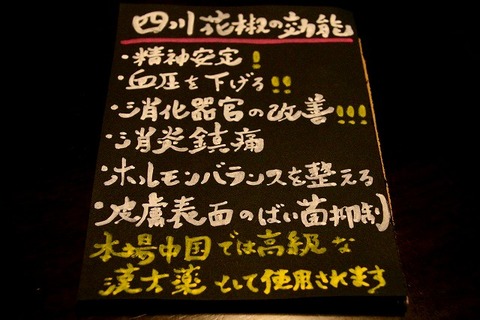 四川花椒の効能
・精神安定!
・血圧を下げる!!
・消化器官の改善!!!
・消炎鎮痛
・ホルモンバランスを整える
・皮膚表面のばい菌抑制
本場中国では高級な
漢方薬として使用されます